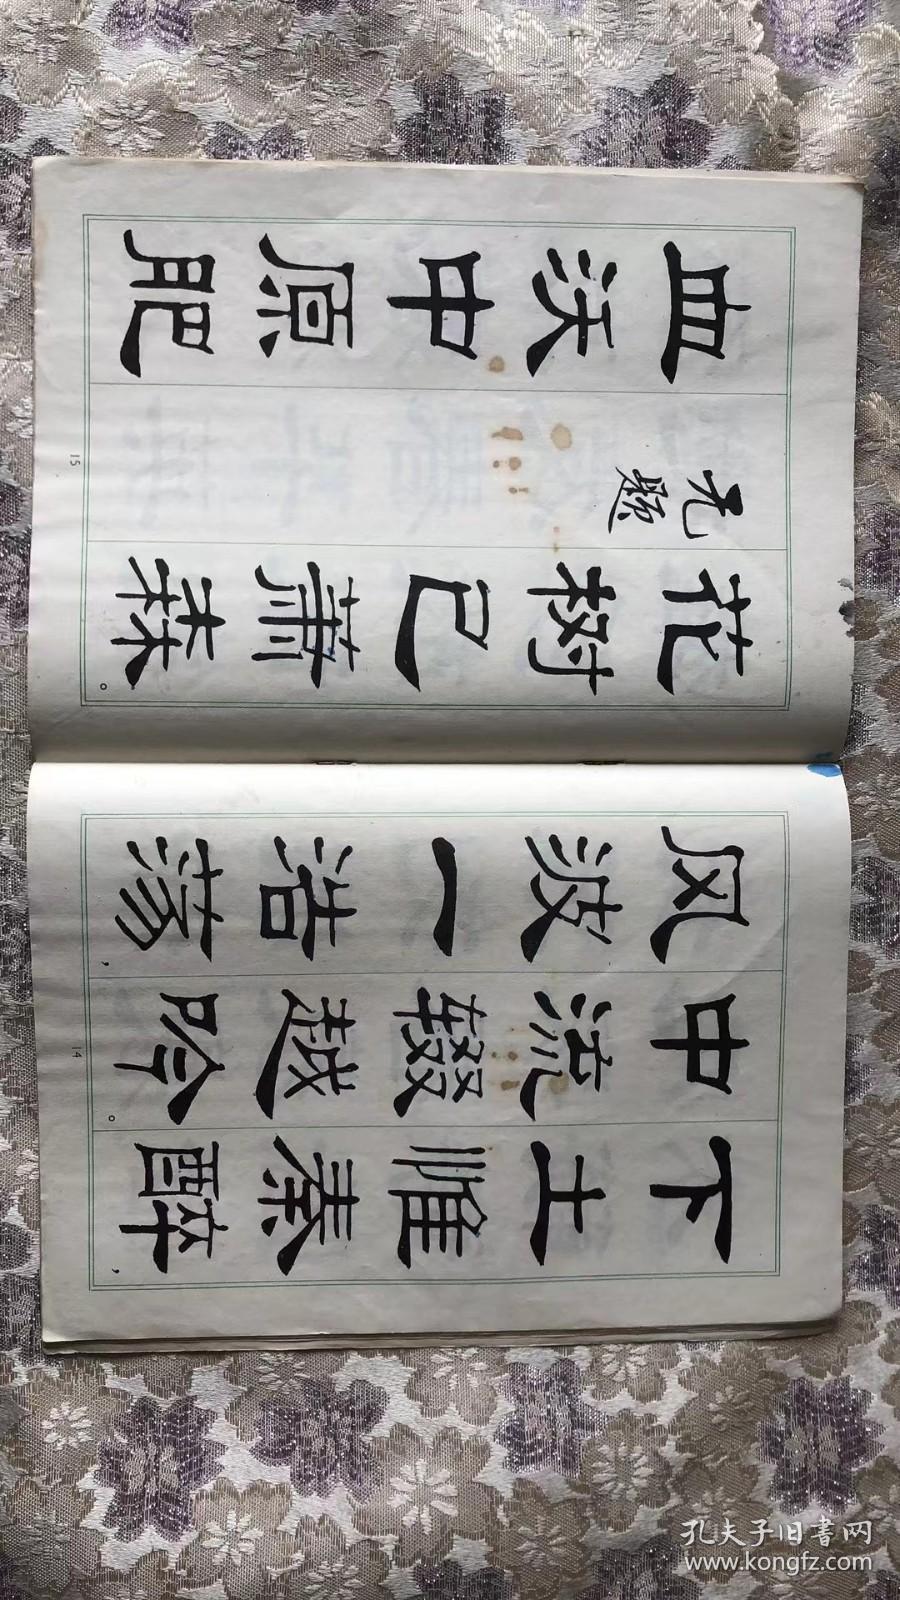 下土惟秦醉，
中流辍越吟。
风波一浩荡，
14
花树已萧森。
无题
血沃中原肥
15
孔夫子旧书网
www.kongfz.com